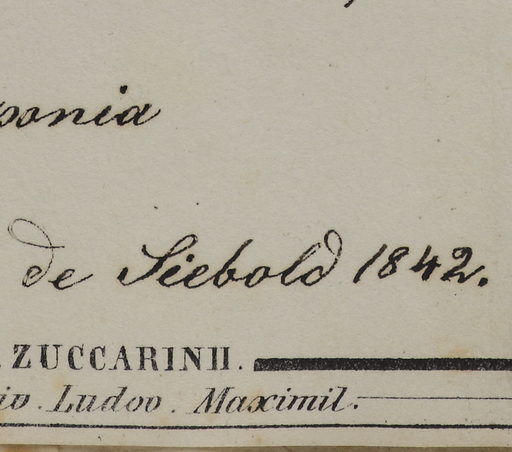 ponia
de Siebold 1842.
ZUCCARINII.
iv. Ludov. Maximil.